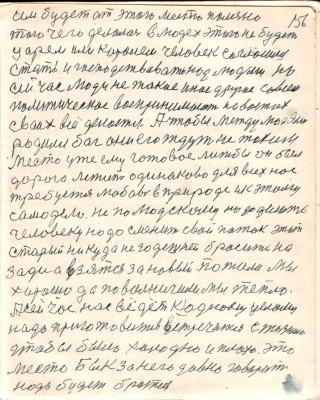 им будет от этого место полезно
156
того чего делалая в людех этого не будет
царем или королем человек согласил
стать и господствовать над людями но
сей час люди не такие иные другие совсем
политическое воспринимают на востих
своих всё делается. А чтобы между людями
родился бог они его ждут не таким
место уже ему готовое лиж бы он был
дорого летит одинаково для всех нас
требуется любовь в природе и к этому
самодело. не по людскому но
человеку надо сменить свой поток этот
старый никуда не годещий бросить на
зади а взятся за новый пожили мы
хорошо да поволничили мы тепло.
А сей час нас ведёт к одному целому
надо приготовится встречятся с
чтобы было холодно и плохо. это
место Бык за него давно говорит
нодь будет братся